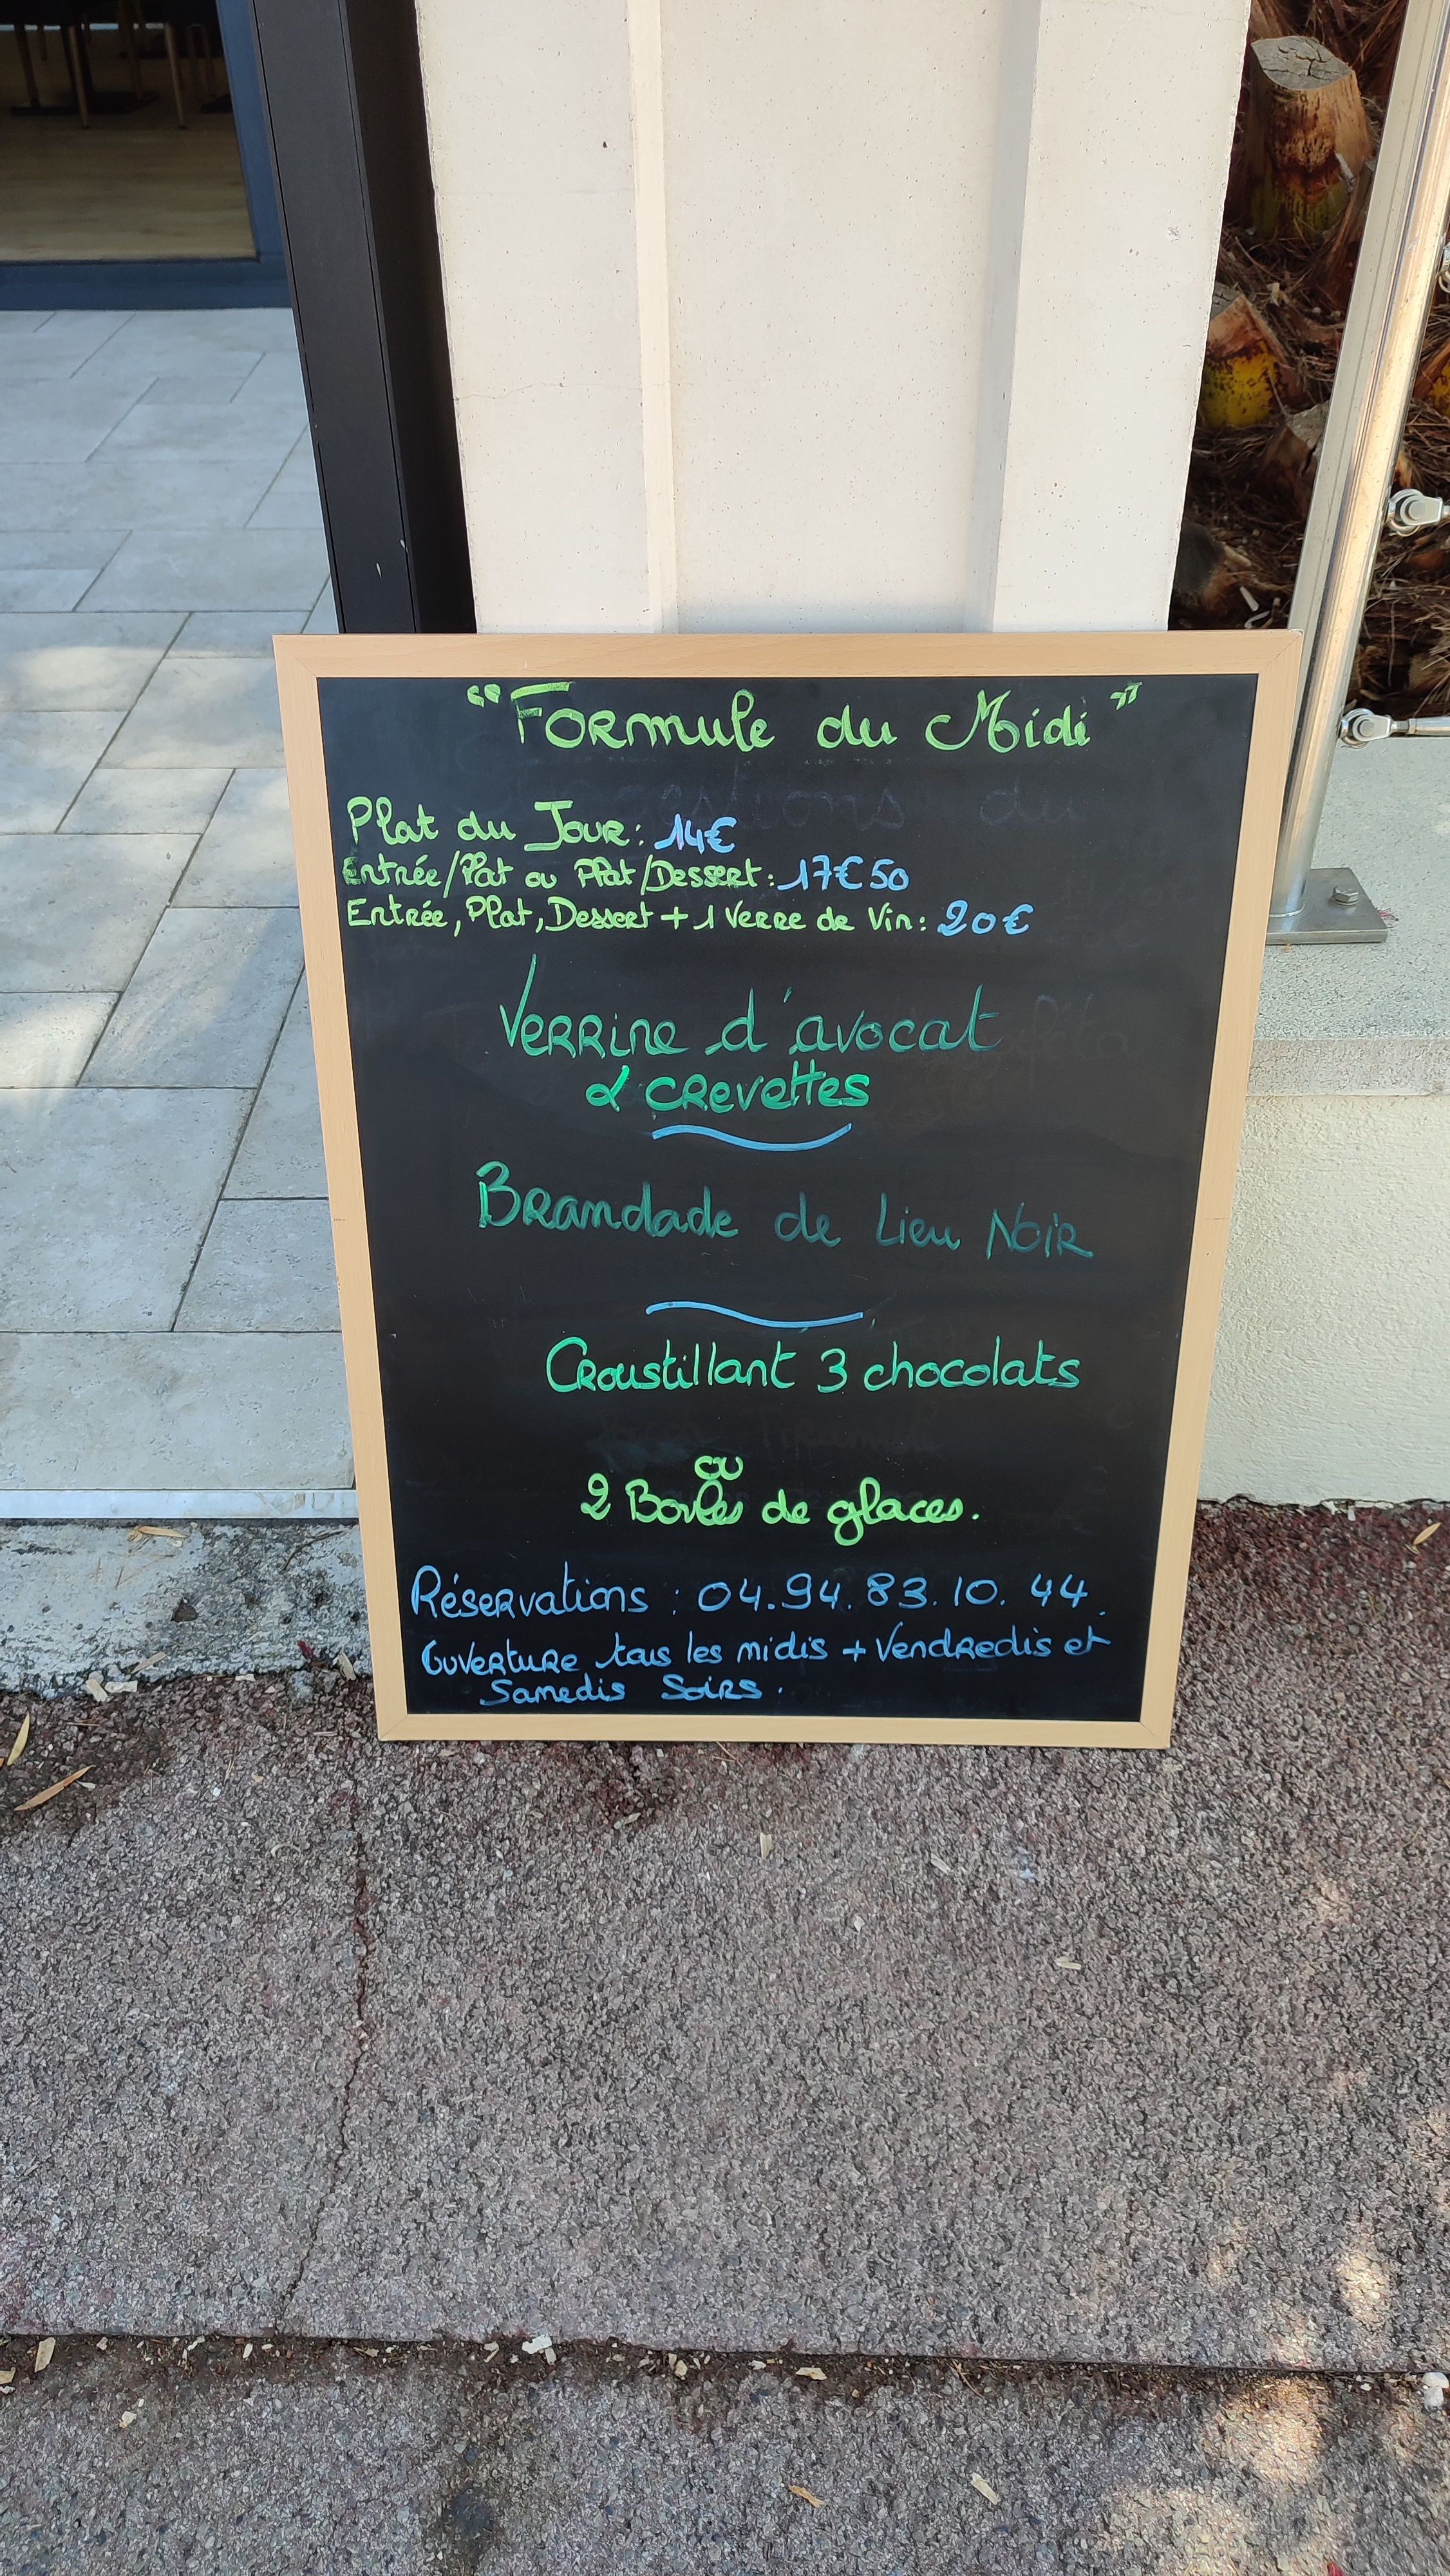 "Formule du Midi"
Plat du Jour: 14€
Entrée/Plat ou Plat/Dessert: 17€50
Entrée, Plat, Dessert + 1 Verre de Vin: 20€
Verrine d'avocat
& crevettes
Brandade de Lieu Noir
Croustillant 3 chocolats
ou
2 Boules de glaces.
Réservations : 04.94.83.10.44.
Ouverture tous les midis + Vendredis et
Samedis Soirs.